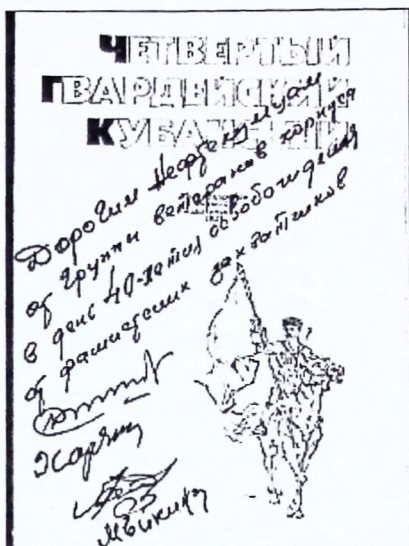 ЧЕТВЕРТЫЙ
ГВАРДЕЙСКИЙ
КУБАНСКИЙ
Дорогим Нефтекумцам
от группы ветеранов корпуса
в день 40-летия освобождения
от фашистских захватчиков